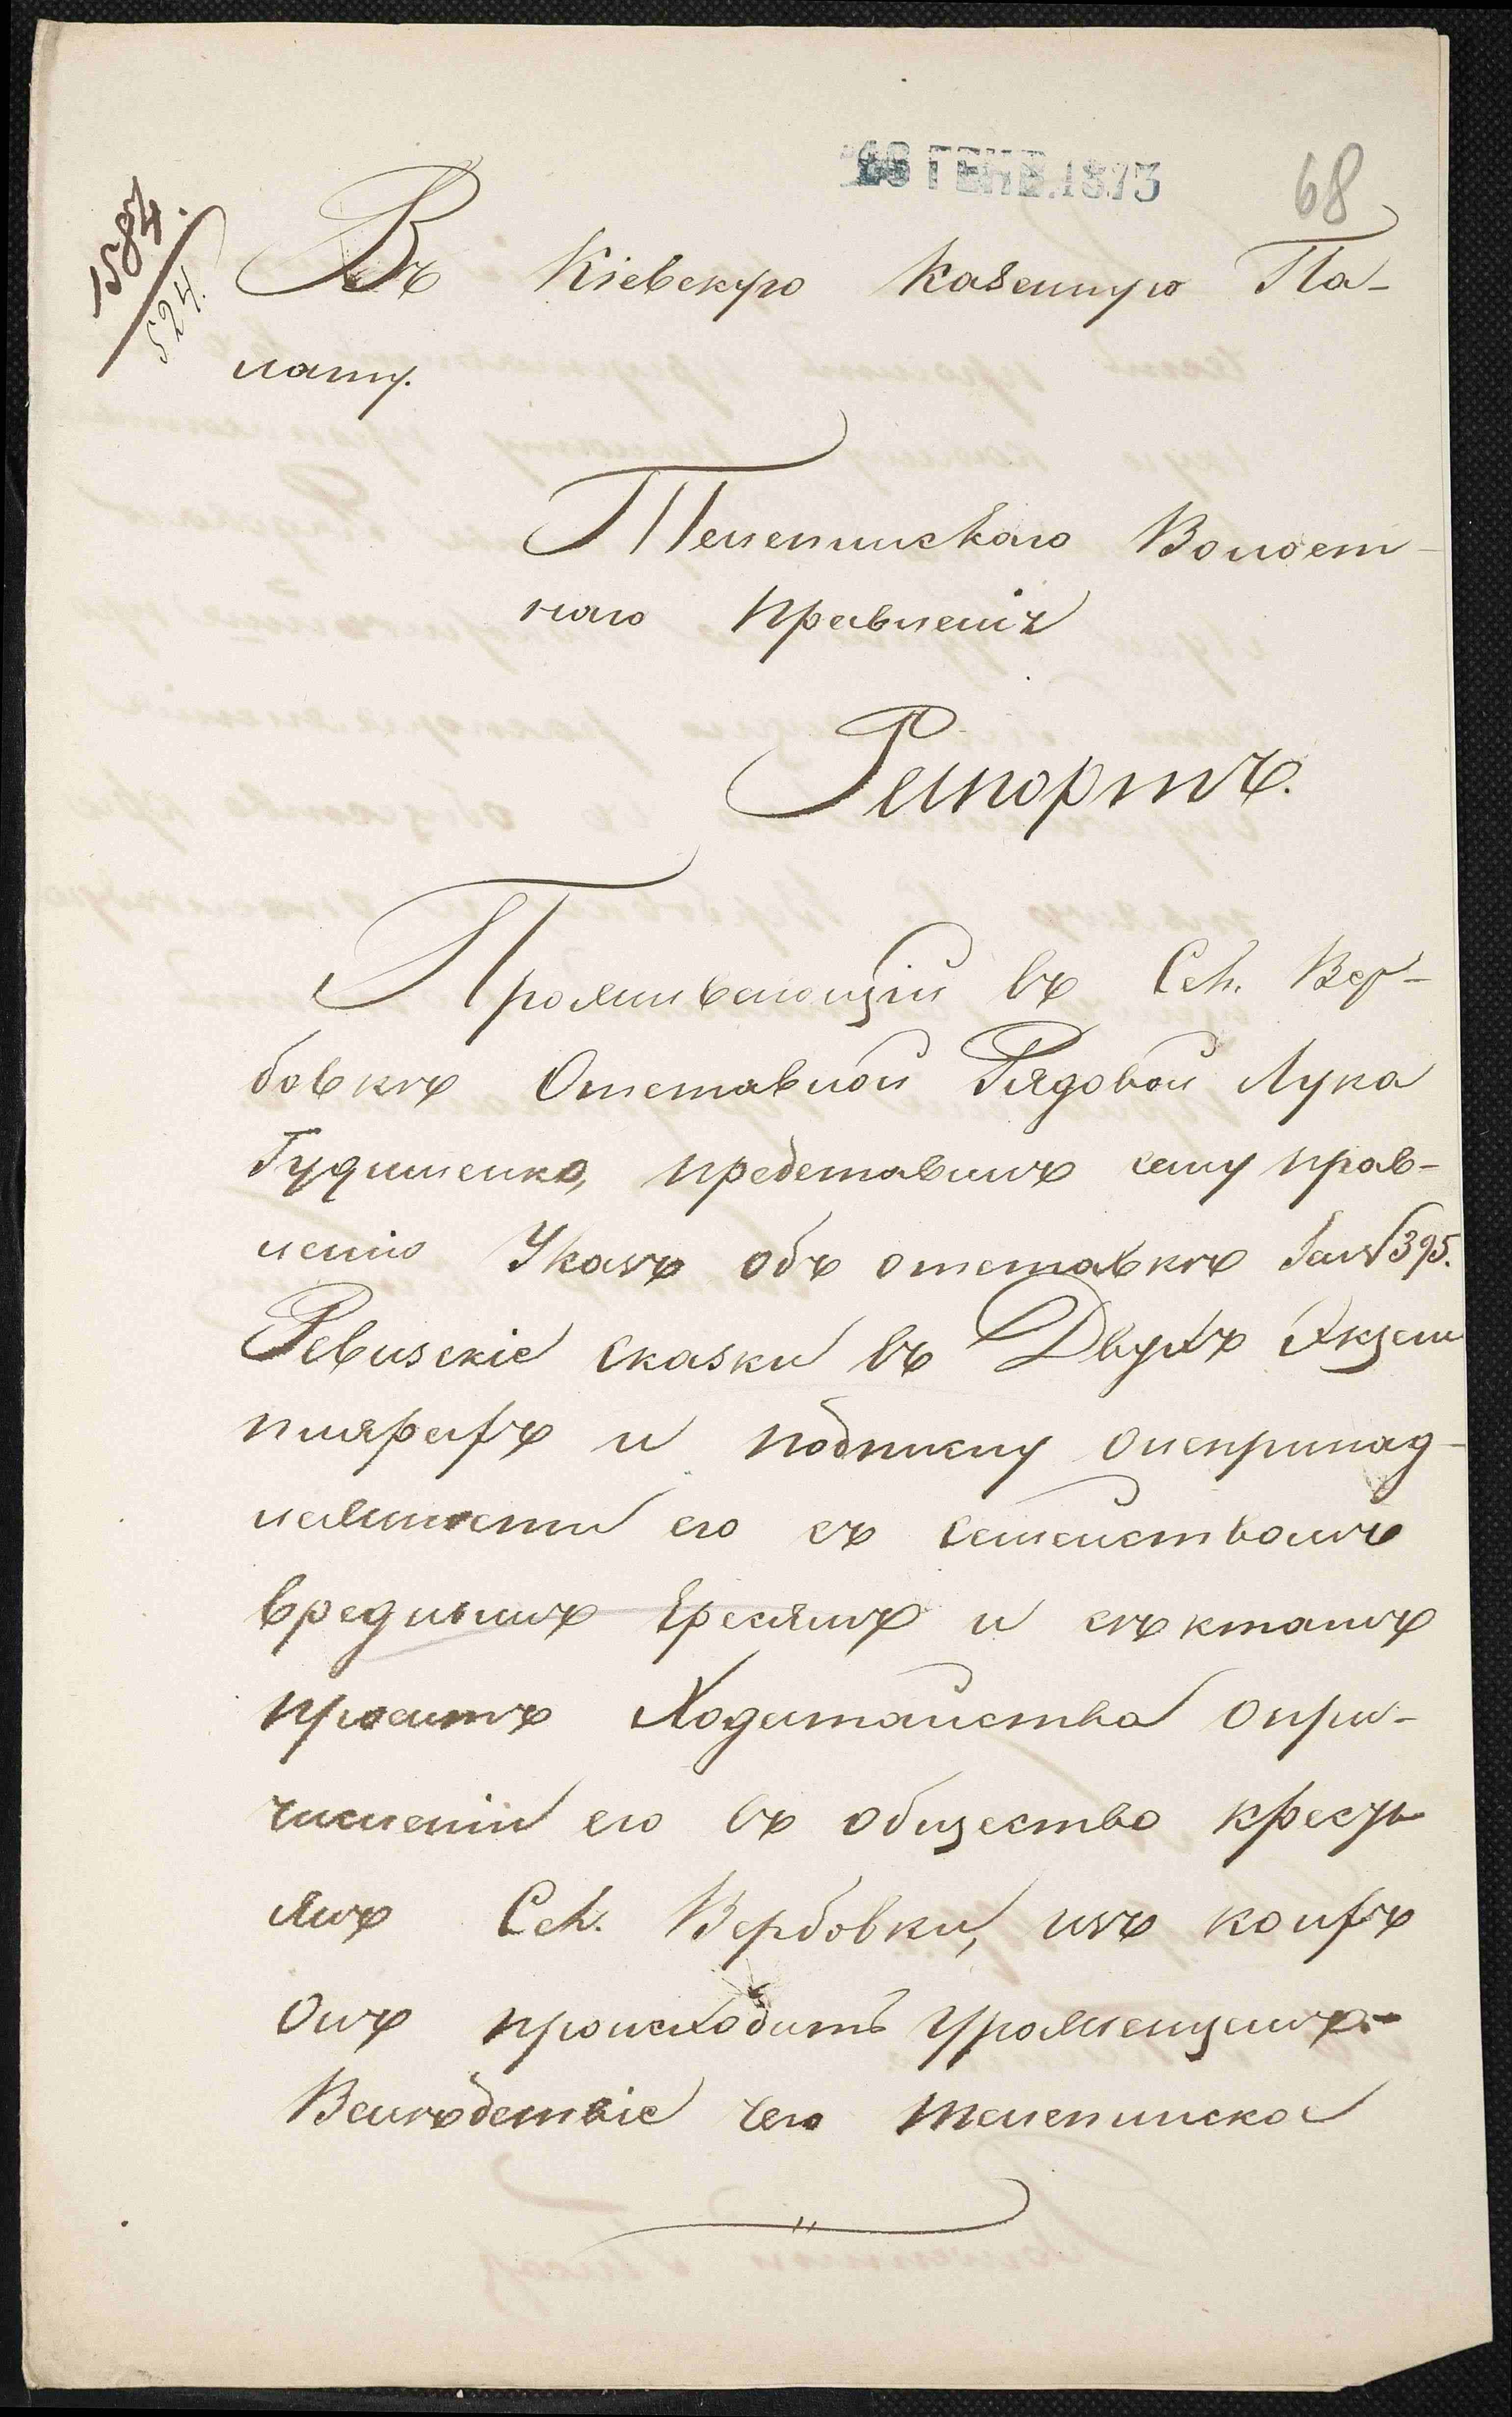 ГЕНВ. 1873
68
1584.
524.
Въ Кіевскую Казенную Па-
лату.
Телепинскаго Волост-
наго Правленія
Рапортъ.
Проживающій въ Сел. Вер-
бовкѣ Отставной Рядовой Лука
представилъ сему прав-
ленію Указъ объ отставкѣ за № 395.
Ревизскіе сказки въ Двухъ Экзем
плярахъ и подписку онепринад-
лежности его съ семействомъ
вреднымъ Ересямъ и сѣктамъ
проситъ Ходатайства опри-
численіи его въ общество кресть
янъ Сел. Вербовки, изъ коихъ
Онъ происходитъ урожденцемъ.-
Вслѣдствіе чего Телепинское